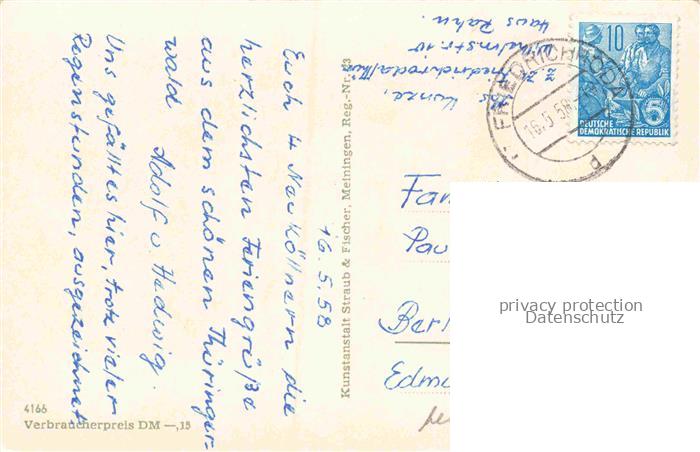 16.5.58
Euch 4 Neuköllnern die
herzlichsten Feriengrüße
aus dem schönen Thüringer-
wald Adolf u. Hedwig.
Uns gefällt es hier, trotz vieler
Regenstunden, ausgezeichnet
Kunstanstalt Straub & Fischer, Meiningen, Reg.-Nr.
4166
Verbraucherpreis DM —,15
Haus Hahn.
10
DEUTSCHE
DEMOKRATISCHE REPUBLIK
5
FRIEDRICHRODA
16.5.58
Fam
Pau
Berl
Edm
privacy protection
Datenschutz